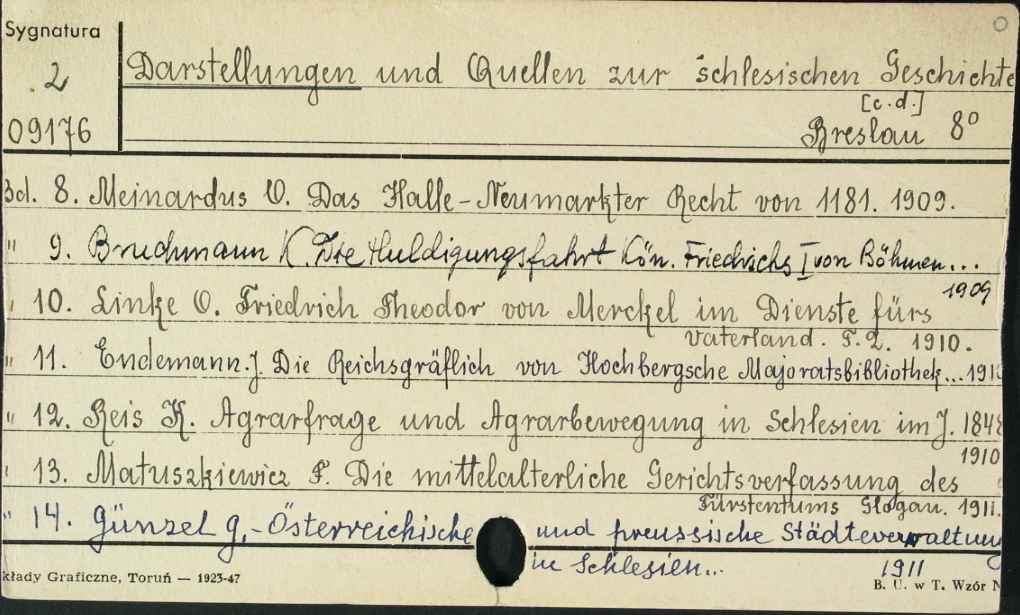 Sygnatura
2 Darstellungen und Quellen zur schlesischen Geschichte
[c.d.]
09176 Breslau 8°
Bd. 8. Meinardus O. Das Halle-Neumarkter Recht von 1181. 1909.
" 9. Bruchmann K. Die Huldigungsfahrt Kön. Friedrichs I von Böhmen...
1909
" 10. Linke O. Friedrich Theodor von Merckel im Dienste fürs
Vaterland. T. 2. 1910.
" 11. Endemann. J. Die Reichsgräflich von Hochbergsche Majoratsbibliothek...191
" 12. Reis K. Agrarfrage und Agrarbewegung in Schlesien im J. 1848
1910
" 13. Matuszkiewicz F. Die mittelalterliche Gerichtsverfassung des
Fürstentums Glogau. 1911.
" 14. Günzel g,- Österreichische und preussische Städteverwaltung
in Schlesien... 1911
kłady Graficzne, Toruń — 1923-47 B. U. w T. Wzór N